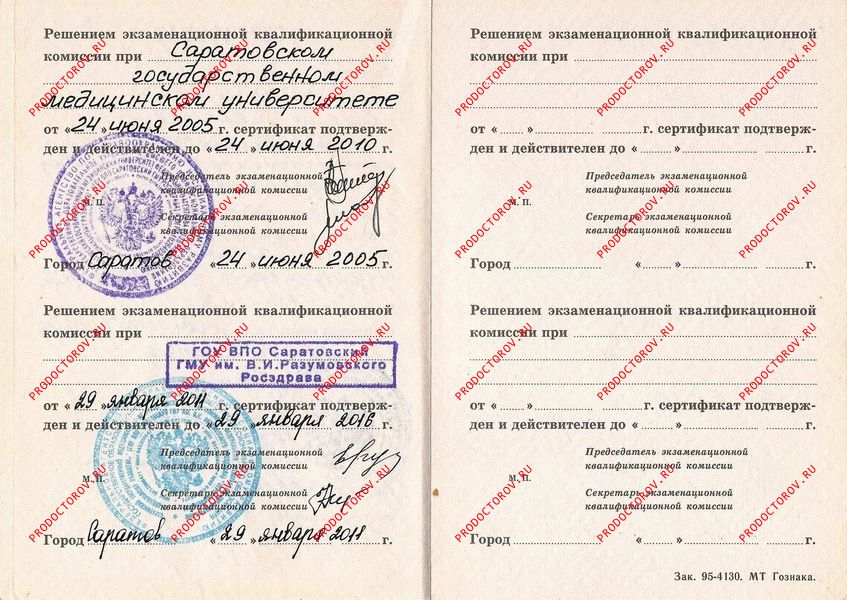 Решением экзаменационной квалификационной
комиссии при Саратовском
государственном
медицинском университете
от «24» июня 2005 г. сертификат подтверж-
ден и действителен до «24» июня 2010 г.
Председатель экзаменационной
квалификационной комиссии
М. П.
Секретарь экзаменационной
квалификационной комиссии
Город Саратов «24» июня 2005 г.
Решением экзаменационной квалификационной
комиссии при
ГОУ ВПО Саратовский
ГМУ им. В.И.Разумовского
Росздрава
от «29» января 2011 г. сертификат подтверж-
ден и действителен до «29» января 2016 г.
Председатель экзаменационной
квалификационной комиссии
М. П.
Секретарь экзаменационной
квалификационной комиссии
Город Саратов «29» января 2011 г.
Решением экзаменационной квалификационной
комиссии при
от « » г. сертификат подтверж-
ден и действителен до « » г.
Председатель экзаменационной
квалификационной комиссии
М. П.
Секретарь экзаменационной
квалификационной комиссии
Город « » г.
Решением экзаменационной квалификационной
комиссии при
от « » г. сертификат подтверж-
ден и действителен до « » г.
Председатель экзаменационной
квалификационной комиссии
М. П.
Секретарь экзаменационной
квалификационной комиссии
Город « » г.
Зак. 95-4130. МТ Гознака.
PRODOCTOROV.RU